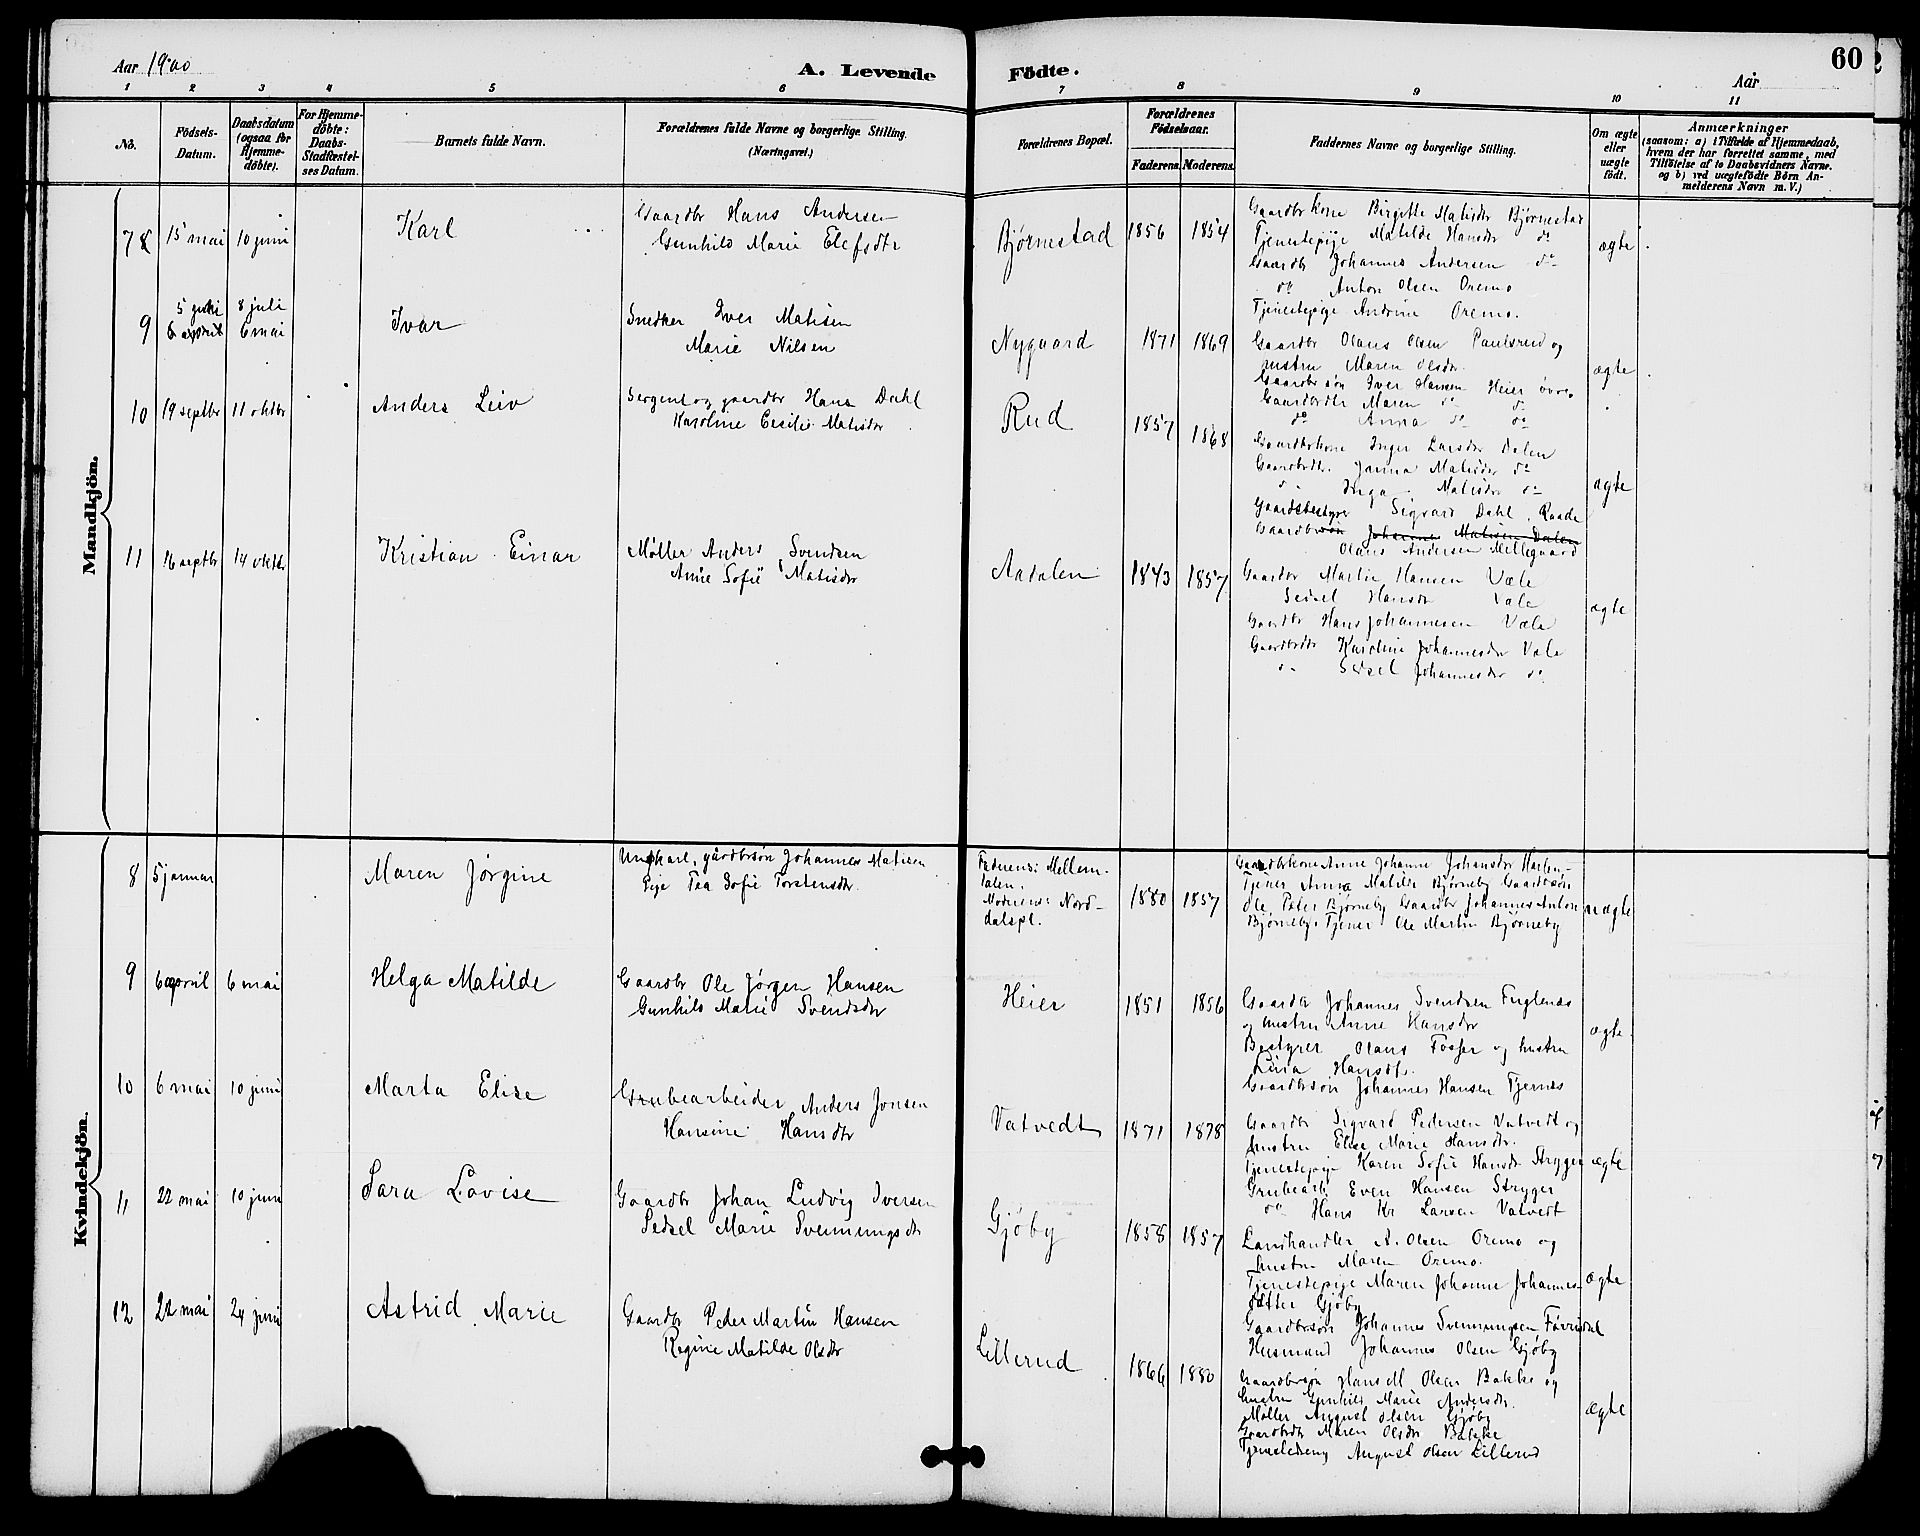 Aar 1900
A. Levende Födte.
60
Aar
1 2 3 4 5 6 7 8 9 10 11
No.
Födsels-
Datum.
Daabsdatum
(ogsaa for
Hjemme-
döbte).
For Hjemme-
döbte:
Daabs-
Stadfæstel-
ses Datum.
Barnets fulde Navn.
Forældrenes fulde Navne og borgerlige Stilling.
(Næringsvei.)
Forældrenes Bopæl.
Forældrenes
Födselsaar.
Faderens. Moderens.
Faddernes Navne og borgerlige Stilling.
Om ægte
eller
uægte
födt.
Anmærkninger
(saasom: a) i Tilfælde af Hjemmedaab,
hvem der har forrettet samme, med
Tilföielse af to Daabsvidners Navne.
og b) ved uægtefödte Börn An-
melderens Navn m. V.)
Mandkjön.
8 15 mai 10 juni Karl
Gaardbr Hans Andersen
Gunhild Marie Elefsdtr
Bjørnestad 1856 1854
Gaardbrkone Birgitte Matisdr Bjørnestad
Tjenestepige Matilde Hansdr do
Gaardbr Johannes Andersen do
do Anton Olsen Oremo
Tjenestepige Andrine Oremo.
ægte
9 5 juni 8 juli
6 april 6 mai
Ivar
Snedker Iver Matisen
Marie Nilsen
Nygaard 1871 1869
Gaardbr Olaus Olsen Paulsrud og
hustru Maren Olsdr.
Gaardbrsön Iver Hansen Heier övre
Gaardbrdtr Maren do do
do Anna do do
ægte
10 19 septbr 11 oktbr Anders Leiv
Sergent og gaardbr Hans Dahl
Karoline Cecilie Matisdr
Rud 1857 1868
Gaardbrkone Inger Larsdr Dalen
Gaardbrdtr. Janna Matisdr do
do Inga Matisdr do
Gaardsbestyrer Sigvard Dahl, Raade
Gaardbrsön Johannes Matisen Dalen
Olaus Andersen Mellegaard
ægte
11 16 septbr 14 oktbr Kristian Einar
Møller Anders Svendsen
Anne Sofie Matisdr
Aadalen 1843 1857
Gaardbr Martin Hansen Væle
Sidsel Hansdr Væle
Gaardbr Hans Johannesen Væle
Gaardbrdtr Karoline Johannesdr Væle
do Sidsel Johannesdr do
ægte
Kvindekjön.
8 5 januar Maren Jørgine
Ungkarl, gårdbrsön Johannes Matisen
Pige Tea Sofie Torstensdr.
Faderens: Mellem-
dalen.
Moderens: Nord-
dalspl.
1880 1857
Gaardbrkone Anne Johanne Johansdr Haslem-
Tjener Anna Matilde Bjørneby Gaardbrsön
Ole Peter Bjørneby Gaardbr Johannes Anton
Bjørneby, Tjener Ole Martin Bjørneby
uægte
9 6 april 6 mai Helga Matilde
Gaardbr Ole Jørgen Hansen
Gunhild Marie Svendsdr
Heier 1851 1856
Gaardbr Johannes Svendsen Fuglenes
og hustru Anne Hansdr
Bestyrer Olaus Fosser og hustru
Lina Hansdt.
Gaardbrsön Johannes Hansen Tjernes
ægte
10 6 mai 10 juni Marta Elise
Grubearbeider Anders Jonsen
Hansine Hansdtr
Vatvedt 1871 1878
Gaardbr Sigvard Pedersen Vatvedt og
hustru Elise Marie Hansdr.
Tjenestepige Karen Sofie Hansdr Stryger
Grubearb. Even Hansen Stryger
do Hans Kr Larsen Vatvedt
ægte
11 22 mai 10 juni Sara Lovise
Gaardbr Johan Ludvig Iversen
Sidsel Marie Svenningsdr
Gjøby 1858 1857
Landhandler A. Olsen Oremo og
hustru Maren Oremo.
Tjenestepige Maren Johanne Johannes-
datter Gjøby
Gaardbrsön Johannes Svenningsen
Husmand Johannes Olsen Gjøby
ægte
12 22 mai 24 juni Astrid Marie
Gaardbr Peder Martin Hansen
Regine Matilde Olsdtr
Lillerud 1866 1880
Gaardbrsön Hans M Olsen Bakke og
hustru Gunhild Marie Andersdtr.
Møller August Olsen Gjøby
Gaardbrdtr Maren Olsdtr Bakke
Tjenestedreng August Olsen Lillerud
ægte